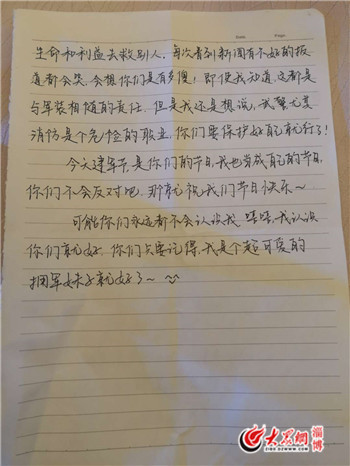 Date. Page.
生命和利益去救别人，每次看到新闻有不好的报
道都会哭，会想你们是有多傻！即使我知道，这都是
与军装相随的责任。但是我还是想说，武警尤其
消防是个危险的职业，你们要保护好自己就行了！
今天建军节，是你们的节日，我也当成自己的节日，
你们不会反对吧。那就祝我们节日快乐~
可能你们永远都不会认识我 嘻嘻，我认识
你们就好，你们只要记得，我是个超可爱的
拥军妹子就好了~
大众网 淄博
ZIBO.DZWWW.COM